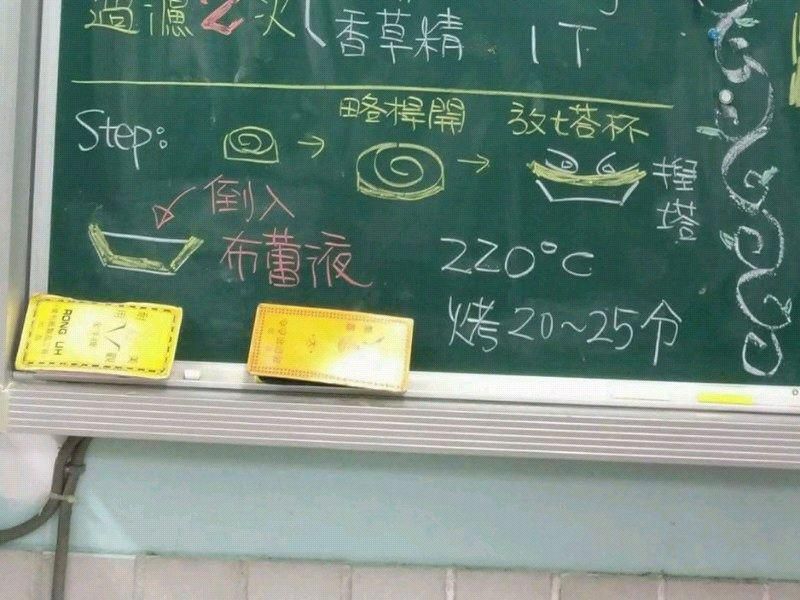 過濾2次
香草精 1T
Step:
略桿開
放七塔杯
捏塔
倒入
布蕾液
220°C
烤20~25分
RONG LIH